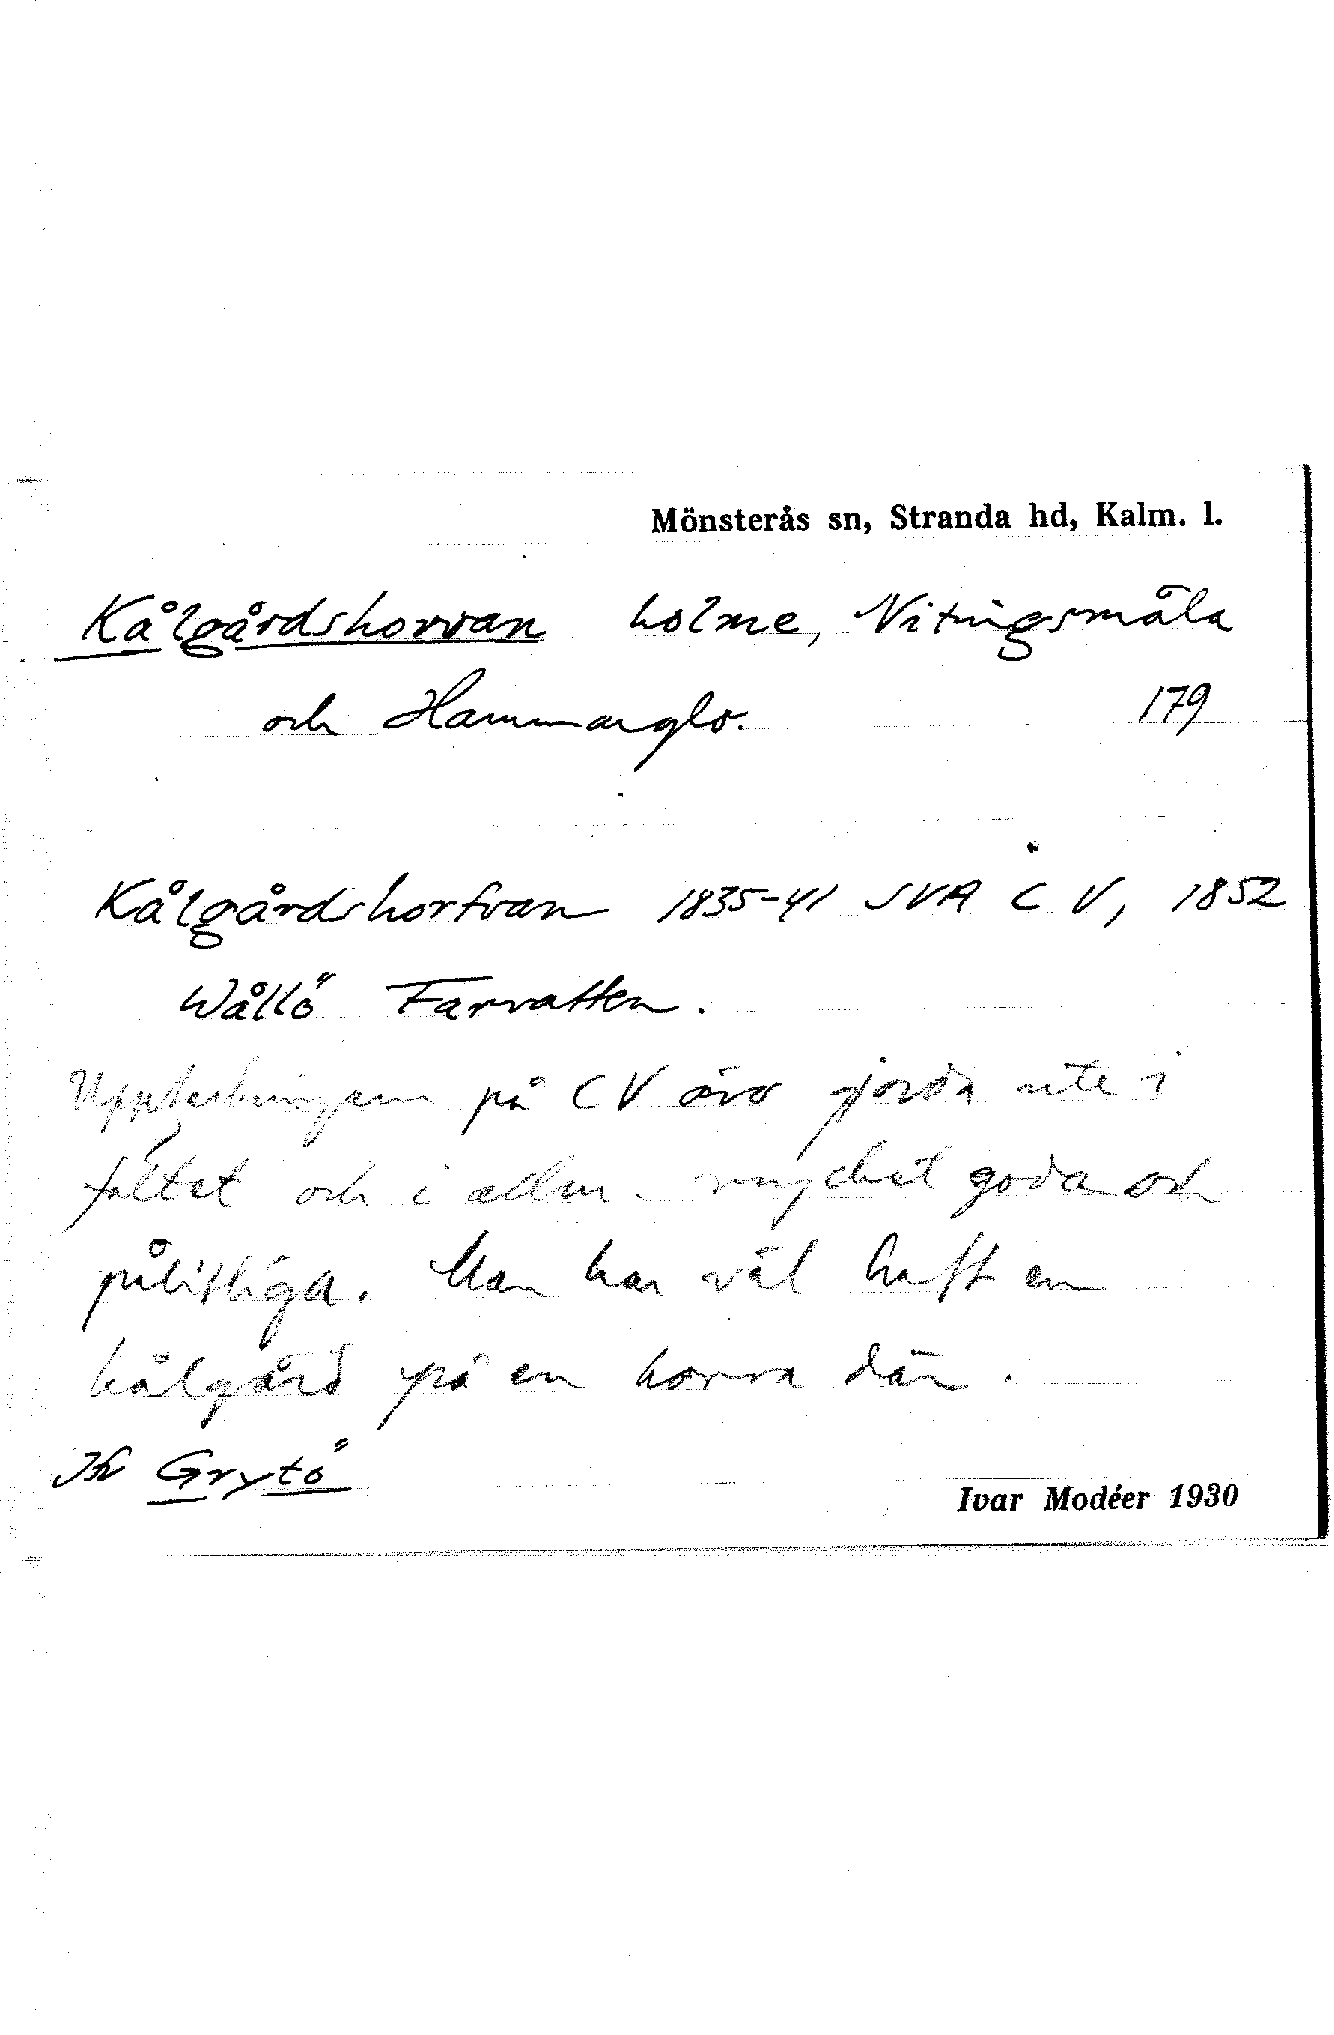 Mönsterås sn, Stranda hd, Kalm. l.
Kålgårdshorvan holme, Nitingsmåla
och Hammarglo. 179
Kålgårdshorfvan 1835-41 SVA C V, 1852
Wållö Farvatten.
Uppteckningarna på CV äro gjorda ute i
fältet och i allm. mycket goda och
pålitliga. Man har väl haft en
kålgård på en horva där.
Jfr Grytö
Ivar Modéer 1930